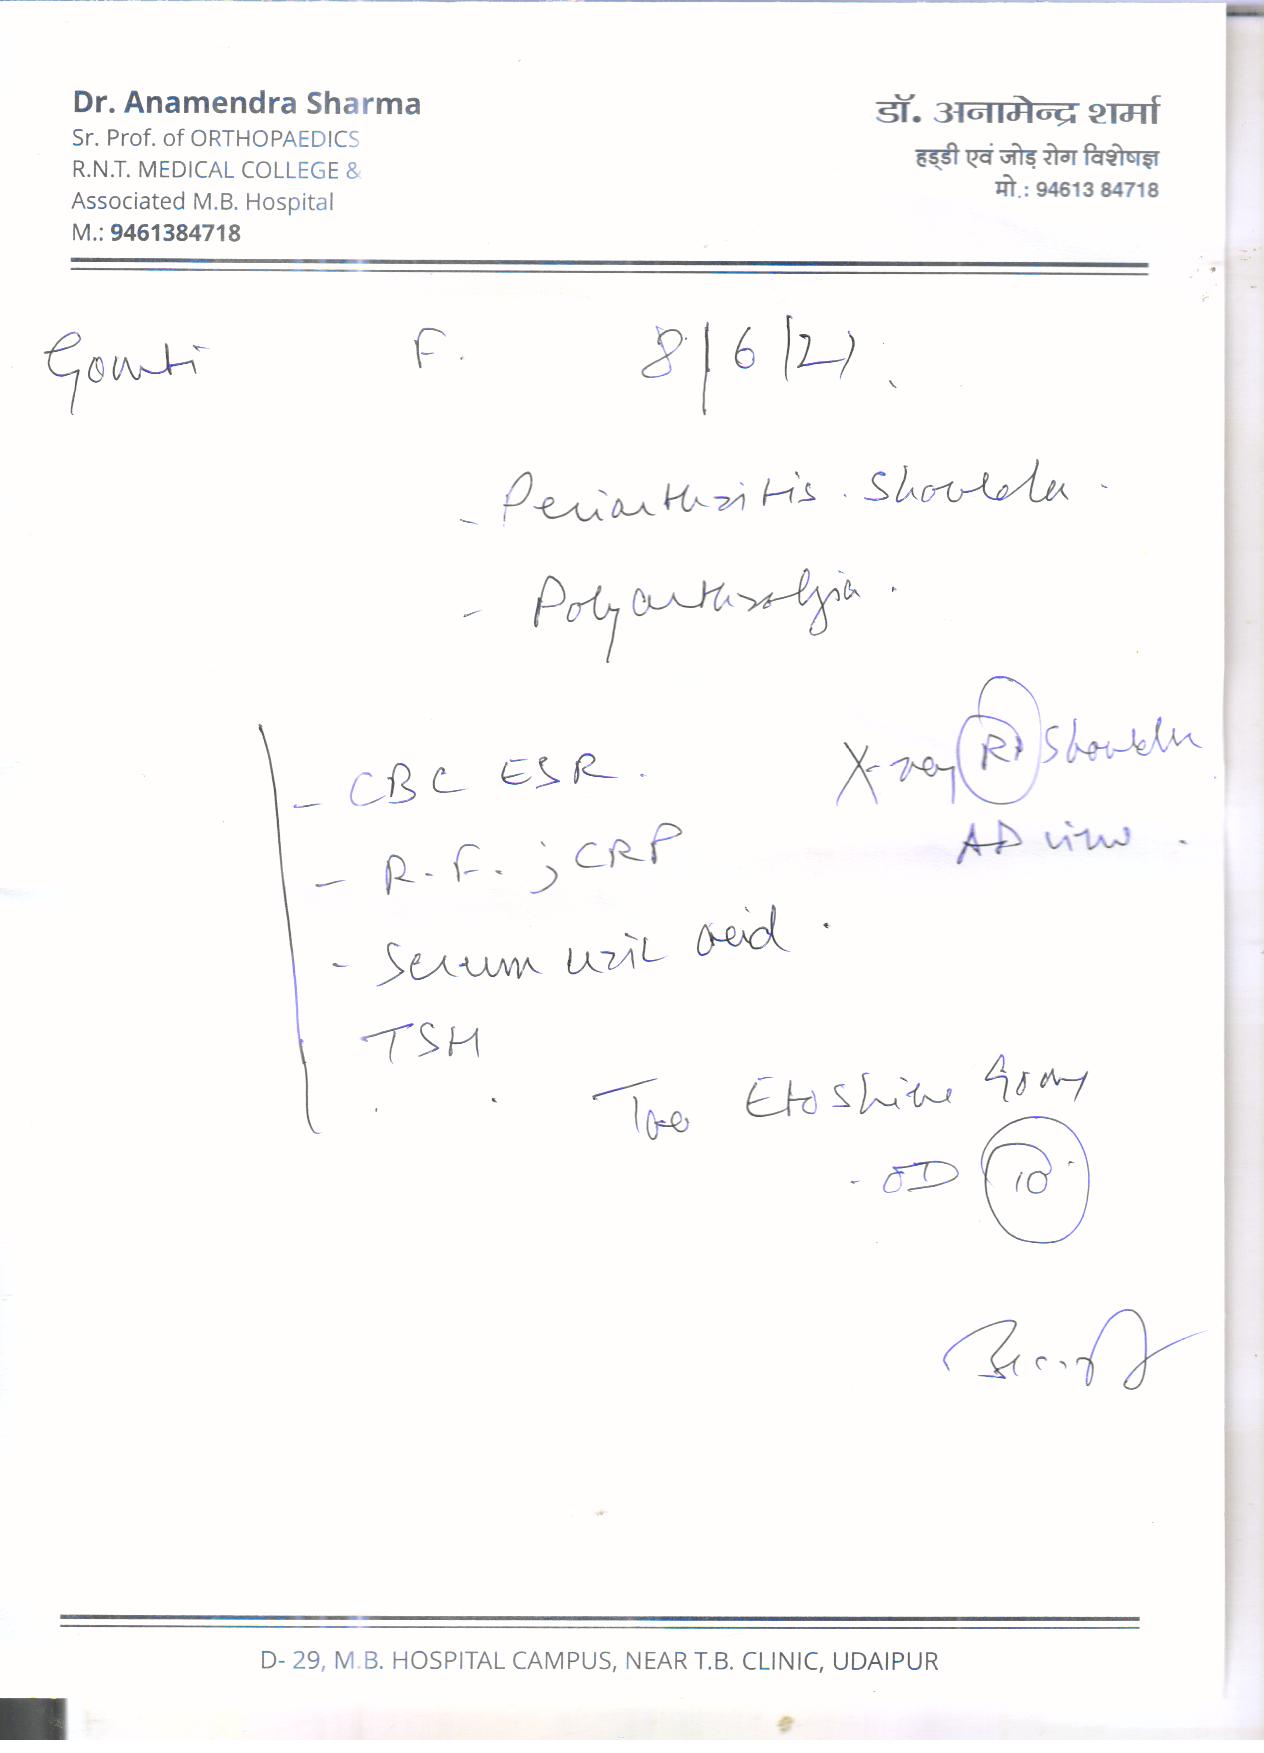 Dr. Anamendra Sharma
Sr. Prof. of ORTHOPAEDICS
R.N.T. MEDICAL COLLEGE &
Associated M.B. Hospital
M.: 9461384718
डॉ. अनामेन्द्र शर्मा
हड्डी एवं जोड़ रोग विशेषज्ञ
मो.: 94613 84718
Gomti F. 8/6/21
- Periarthritis Shoulder
- Polyarthralgia
- CBC ESR
- R.F. ; CRP
- Serum uric acid
TSH
X-ray Rt Shoulder
AP view
Etoshine 90mg
- OD 10
D- 29, M.B. HOSPITAL CAMPUS, NEAR T.B. CLINIC, UDAIPUR